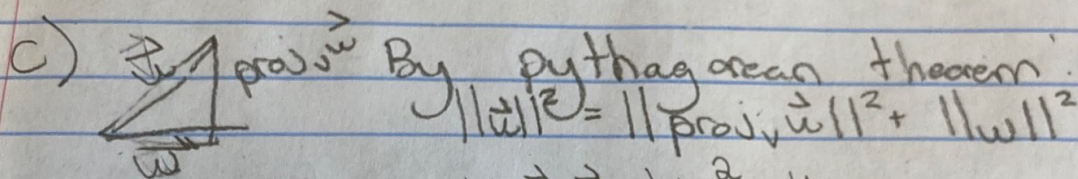 c) proj_v \vec{u} By pythagorean theorem:
||\vec{u}||² = ||proj_v \vec{u}||² + ||w||²
\vec{w}